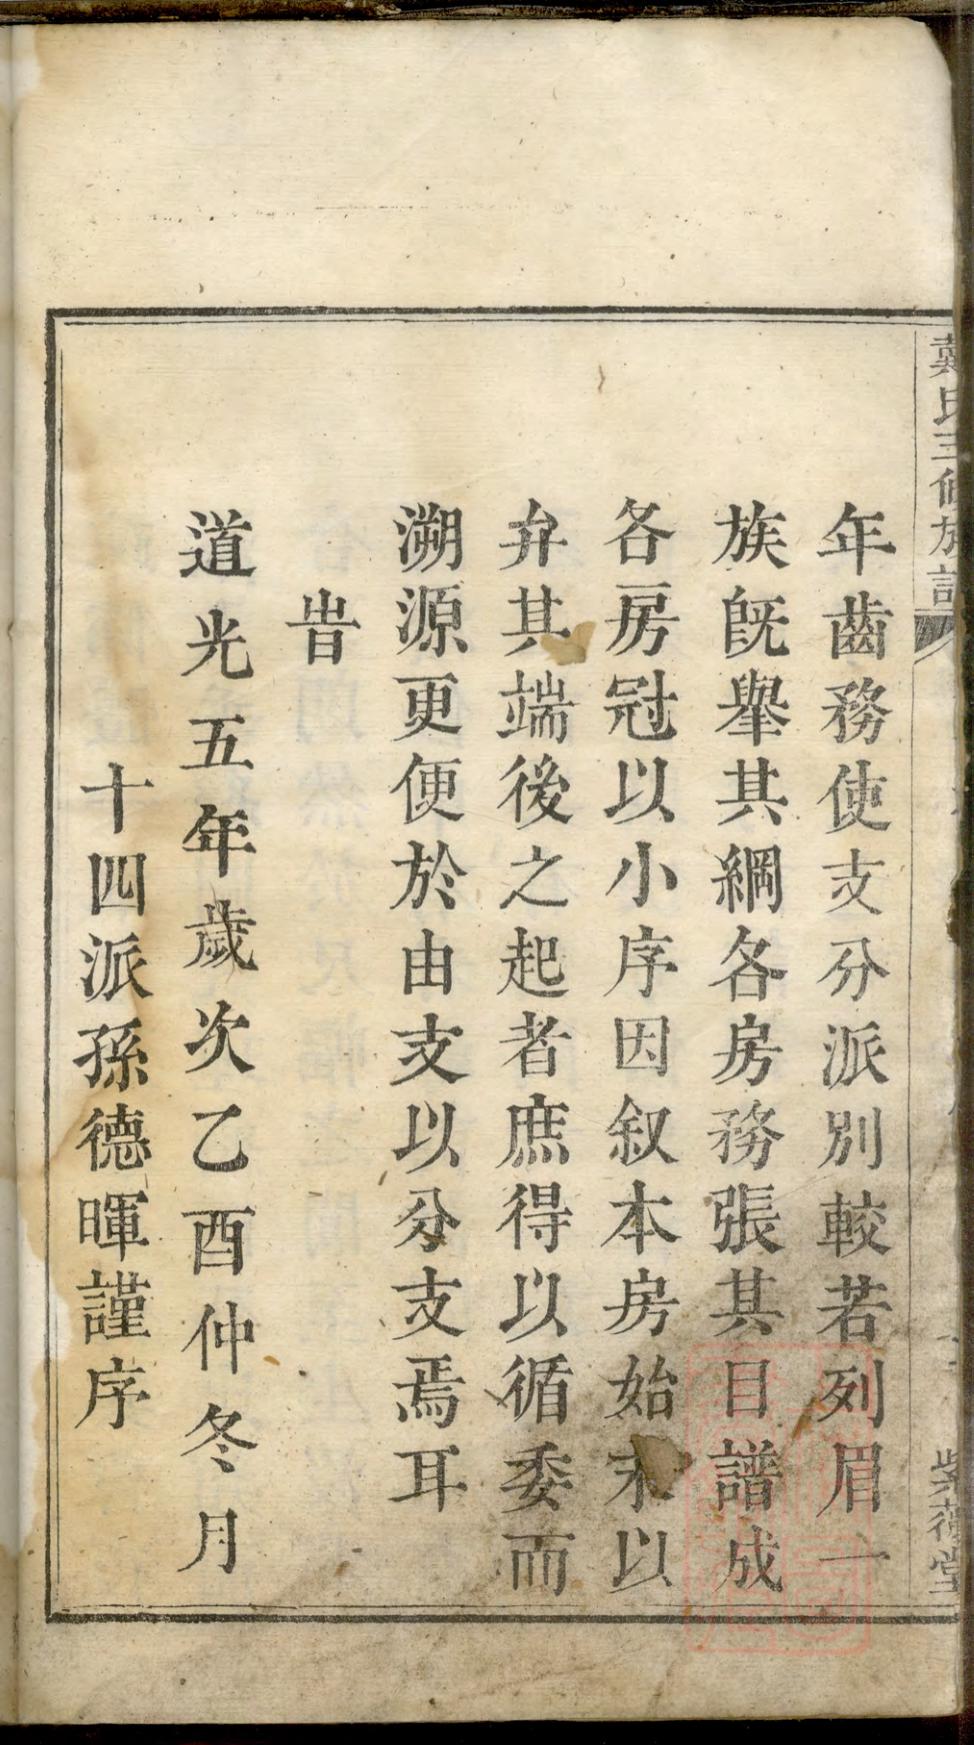 氏三修族譜
紫薇堂
年齒務使支分派別較若列眉一
族既舉其綱各房務張其目譜成
各房冠以小序因叙本房始末以
弁其端後之起者庶得以循委而
溯源更便於由支以分支焉耳
旹
道光五年歲次乙酉仲冬月
十四派孫德暉謹序